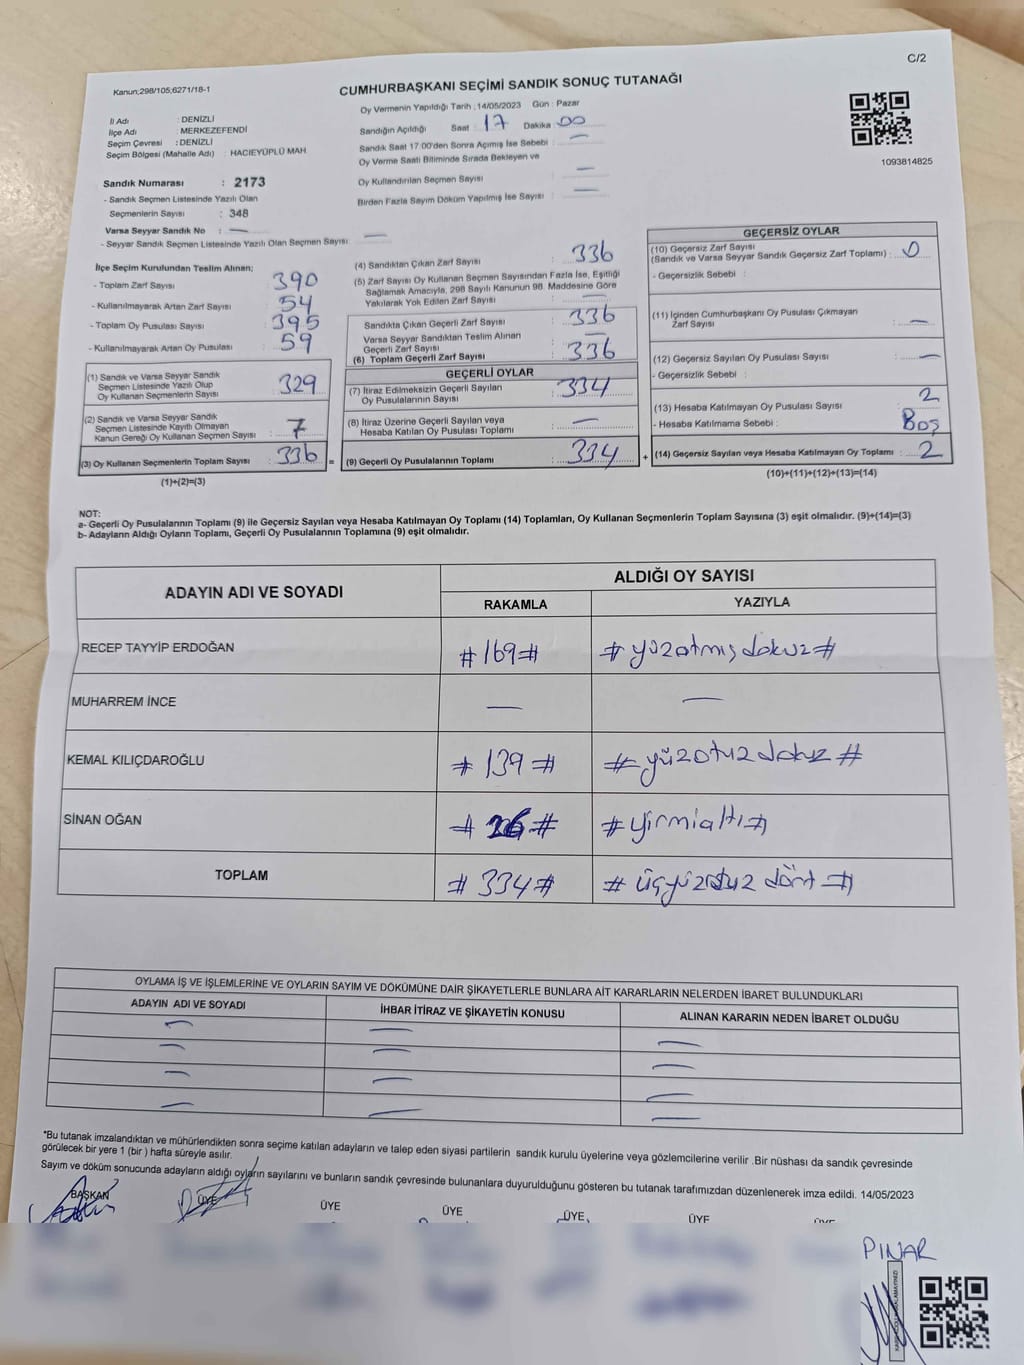 C/2
Kanun;298/105,6271/18-1
CUMHURBAŞKANI SEÇİMİ SANDIK SONUÇ TUTANAĞI
İl Adı : DENİZLİ
İlçe Adı : MERKEZEFENDİ
Seçim Çevresi : DENİZLİ
Seçim Bölgesi (Mahalle Adı) : HACIEYÜPLÜ MAH.
Oy Vermenin Yapıldığı Tarih : 14/05/2023 Gün : Pazar
Sandığın Açıldığı Saat : 17 Dakika : 00
Sandık Saat 17.00'den Sonra Açımış İse Sebebi : —
Oy Verme Saati Bitiminde Sırada Bekleyen ve
Oy Kullandırılan Seçmen Sayısı : —
Birden Fazla Sayım Döküm Yapılmış İse Sayısı : —
1093814825
Sandık Numarası : 2173
- Sandık Seçmen Listesinde Yazılı Olan
Seçmenlerin Sayısı : 348
Varsa Seyyar Sandık No : —
- Seyyar Sandık Seçmen Listesinde Yazılı Olan Seçmen Sayısı : —
İlçe Seçim Kurulundan Teslim Alınan;
- Toplam Zarf Sayısı : 390
- Kullanılmayarak Artan Zarf Sayısı : 54
- Toplam Oy Pusulası Sayısı : 395
- Kullanılmayarak Artan Oy Pusulası : 59
(1) Sandık ve Varsa Seyyar Sandık
Seçmen Listesinde Yazılı Olup
Oy Kullanan Seçmenlerin Sayısı : 329
(2) Sandık ve Varsa Seyyar Sandık
Seçmen Listesinde Kayıtlı Olmayan
Kanun Gereği Oy Kullanan Seçmen Sayısı : 7
(3) Oy Kullanan Seçmenlerin Toplam Sayısı : 336 =
(1)+(2)=(3)
(4) Sandıktan Çıkan Zarf Sayısı : 336
(5) Zarf Sayısı Oy Kullanan Seçmen Sayısından Fazla İse, Eşitliği
Sağlamak Amacıyla, 298 Sayılı Kanunun 98. Maddesine Göre
Yakılarak Yok Edilen Zarf Sayısı : —
Sandıkta Çıkan Geçerli Zarf Sayısı : 336
Varsa Seyyar Sandıktan Teslim Alınan
Geçerli Zarf Sayısı : —
(6) Toplam Geçerli Zarf Sayısı : 336
GEÇERLİ OYLAR
(7) İtiraz Edilmeksizin Geçerli Sayılan
Oy Pusulasının Sayısı : 334
(8) İtiraz Üzerine Geçerli Sayılan veya
Hesaba Katılan Oy Pusulası Toplamı : —
(9) Geçerli Oy Pusulalarının Toplamı : 334 +
GEÇERSİZ OYLAR
(10) Geçersiz Zarf Sayısı
(Sandık ve Varsa Seyyar Sandık Geçersiz Zarf Toplamı) : 0
- Geçersizlik Sebebi :
(11) İçinden Cumhurbaşkanı Oy Pusulası Çıkmayan
Zarf Sayısı : —
(12) Geçersiz Sayılan Oy Pusulası Sayısı : —
- Geçersizlik Sebebi :
(13) Hesaba Katılmayan Oy Pusulası Sayısı : 2
- Hesaba Katılmama Sebebi : Boş
(14) Geçersiz Sayılan veya Hesaba Katılmayan Oy Toplamı : 2
(10)+(11)+(12)+(13)=(14)
NOT:
a- Geçerli Oy Pusulalarının Toplamı (9) ile Geçersiz Sayılan veya Hesaba Katılmayan Oy Toplamı (14) Toplamları, Oy Kullanan Seçmenlerin Toplam Sayısına (3) eşit olmalıdır. (9)+(14)=(3)
b- Adayların Aldığı Oyların Toplamı, Geçerli Oy Pusulalarının Toplamına (9) eşit olmalıdır.
ADAYIN ADI VE SOYADI
ALDIĞI OY SAYISI
RAKAMLA YAZIYLA
RECEP TAYYİP ERDOĞAN # 169 # # yüzatmışdokuz #
MUHARREM İNCE — —
KEMAL KILIÇDAROĞLU # 139 # # yüzotuzdokuz #
SİNAN OĞAN # 26 # # yirmialtı #
TOPLAM # 334 # # üçyüzotuz dört #
OYLAMA İŞ VE İŞLEMLERİNE VE OYLARIN SAYIM VE DÖKÜMÜNE DAİR ŞİKAYETLERLE BUNLARA AİT KARARLARIN NELERDEN İBARET BULUNDUKLARI
ADAYIN ADI VE SOYADI İHBAR İTİRAZ VE ŞİKAYETİN KONUSU ALINAN KARARIN NEDEN İBARET OLDUĞU
— — —
— — —
— — —
— — —
*Bu tutanak imzalandıktan ve mühürlendikten sonra seçime katılan adayların ve talep eden siyasi partilerin sandık kurulu üyelerine veya gözlemcilerine verilir .Bir nüshası da sandık çevresinde
görülecek bir yere 1 (bir ) hafta süreyle asılır.
Sayım ve döküm sonucunda adayların aldığı oyların sayılarını ve bunların sandık çevresinde bulunanlara duyurulduğunu gösteren bu tutanak tarafımızdan düzenlenerek imza edildi. 14/05/2023
BAŞKAN ÜYE ÜYE ÜYE ÜYE ÜYE ÜYE
PINAR